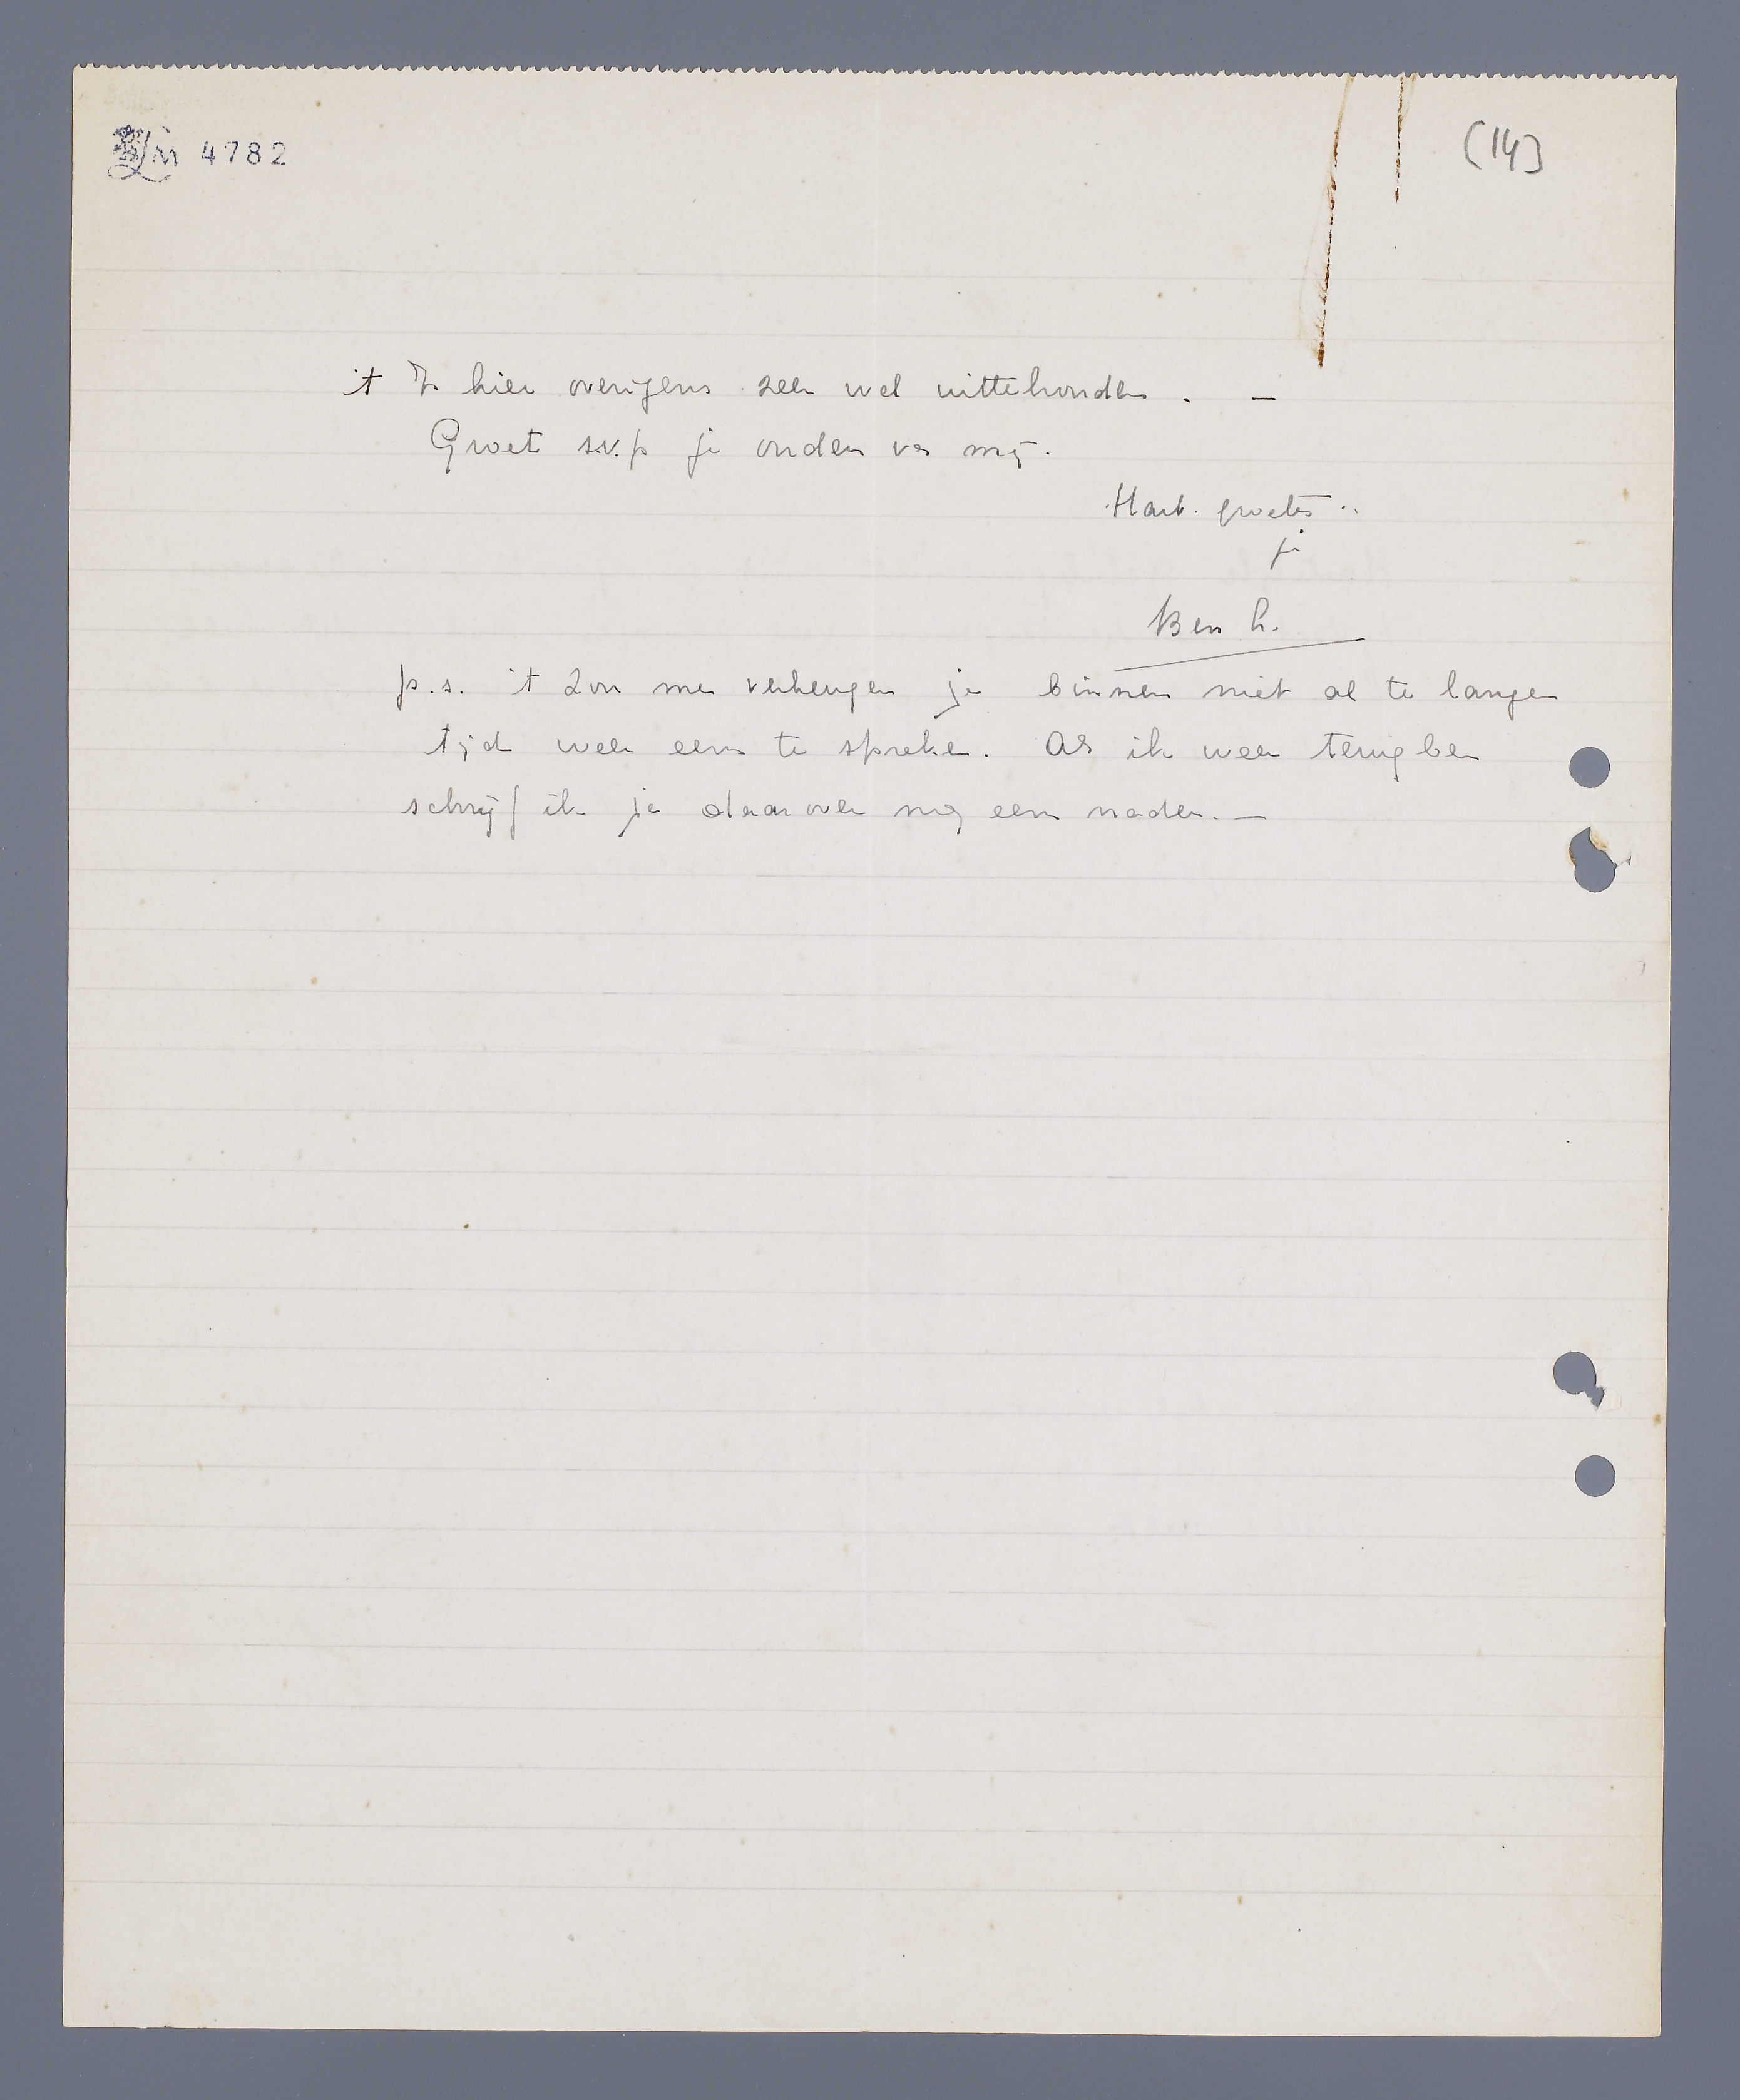 4782
(14)
't Is hier overigens zeer wel uittehouden. —
Groet s.v.p je ouders van mij.
Hart. groeten..
je
Ben h.
p.s. 't zou me verheugen je binnen niet al te langen
tijd weer eens te spreken. Als ik weer terug ben
schrijf ik je daarover nog eens nader. —